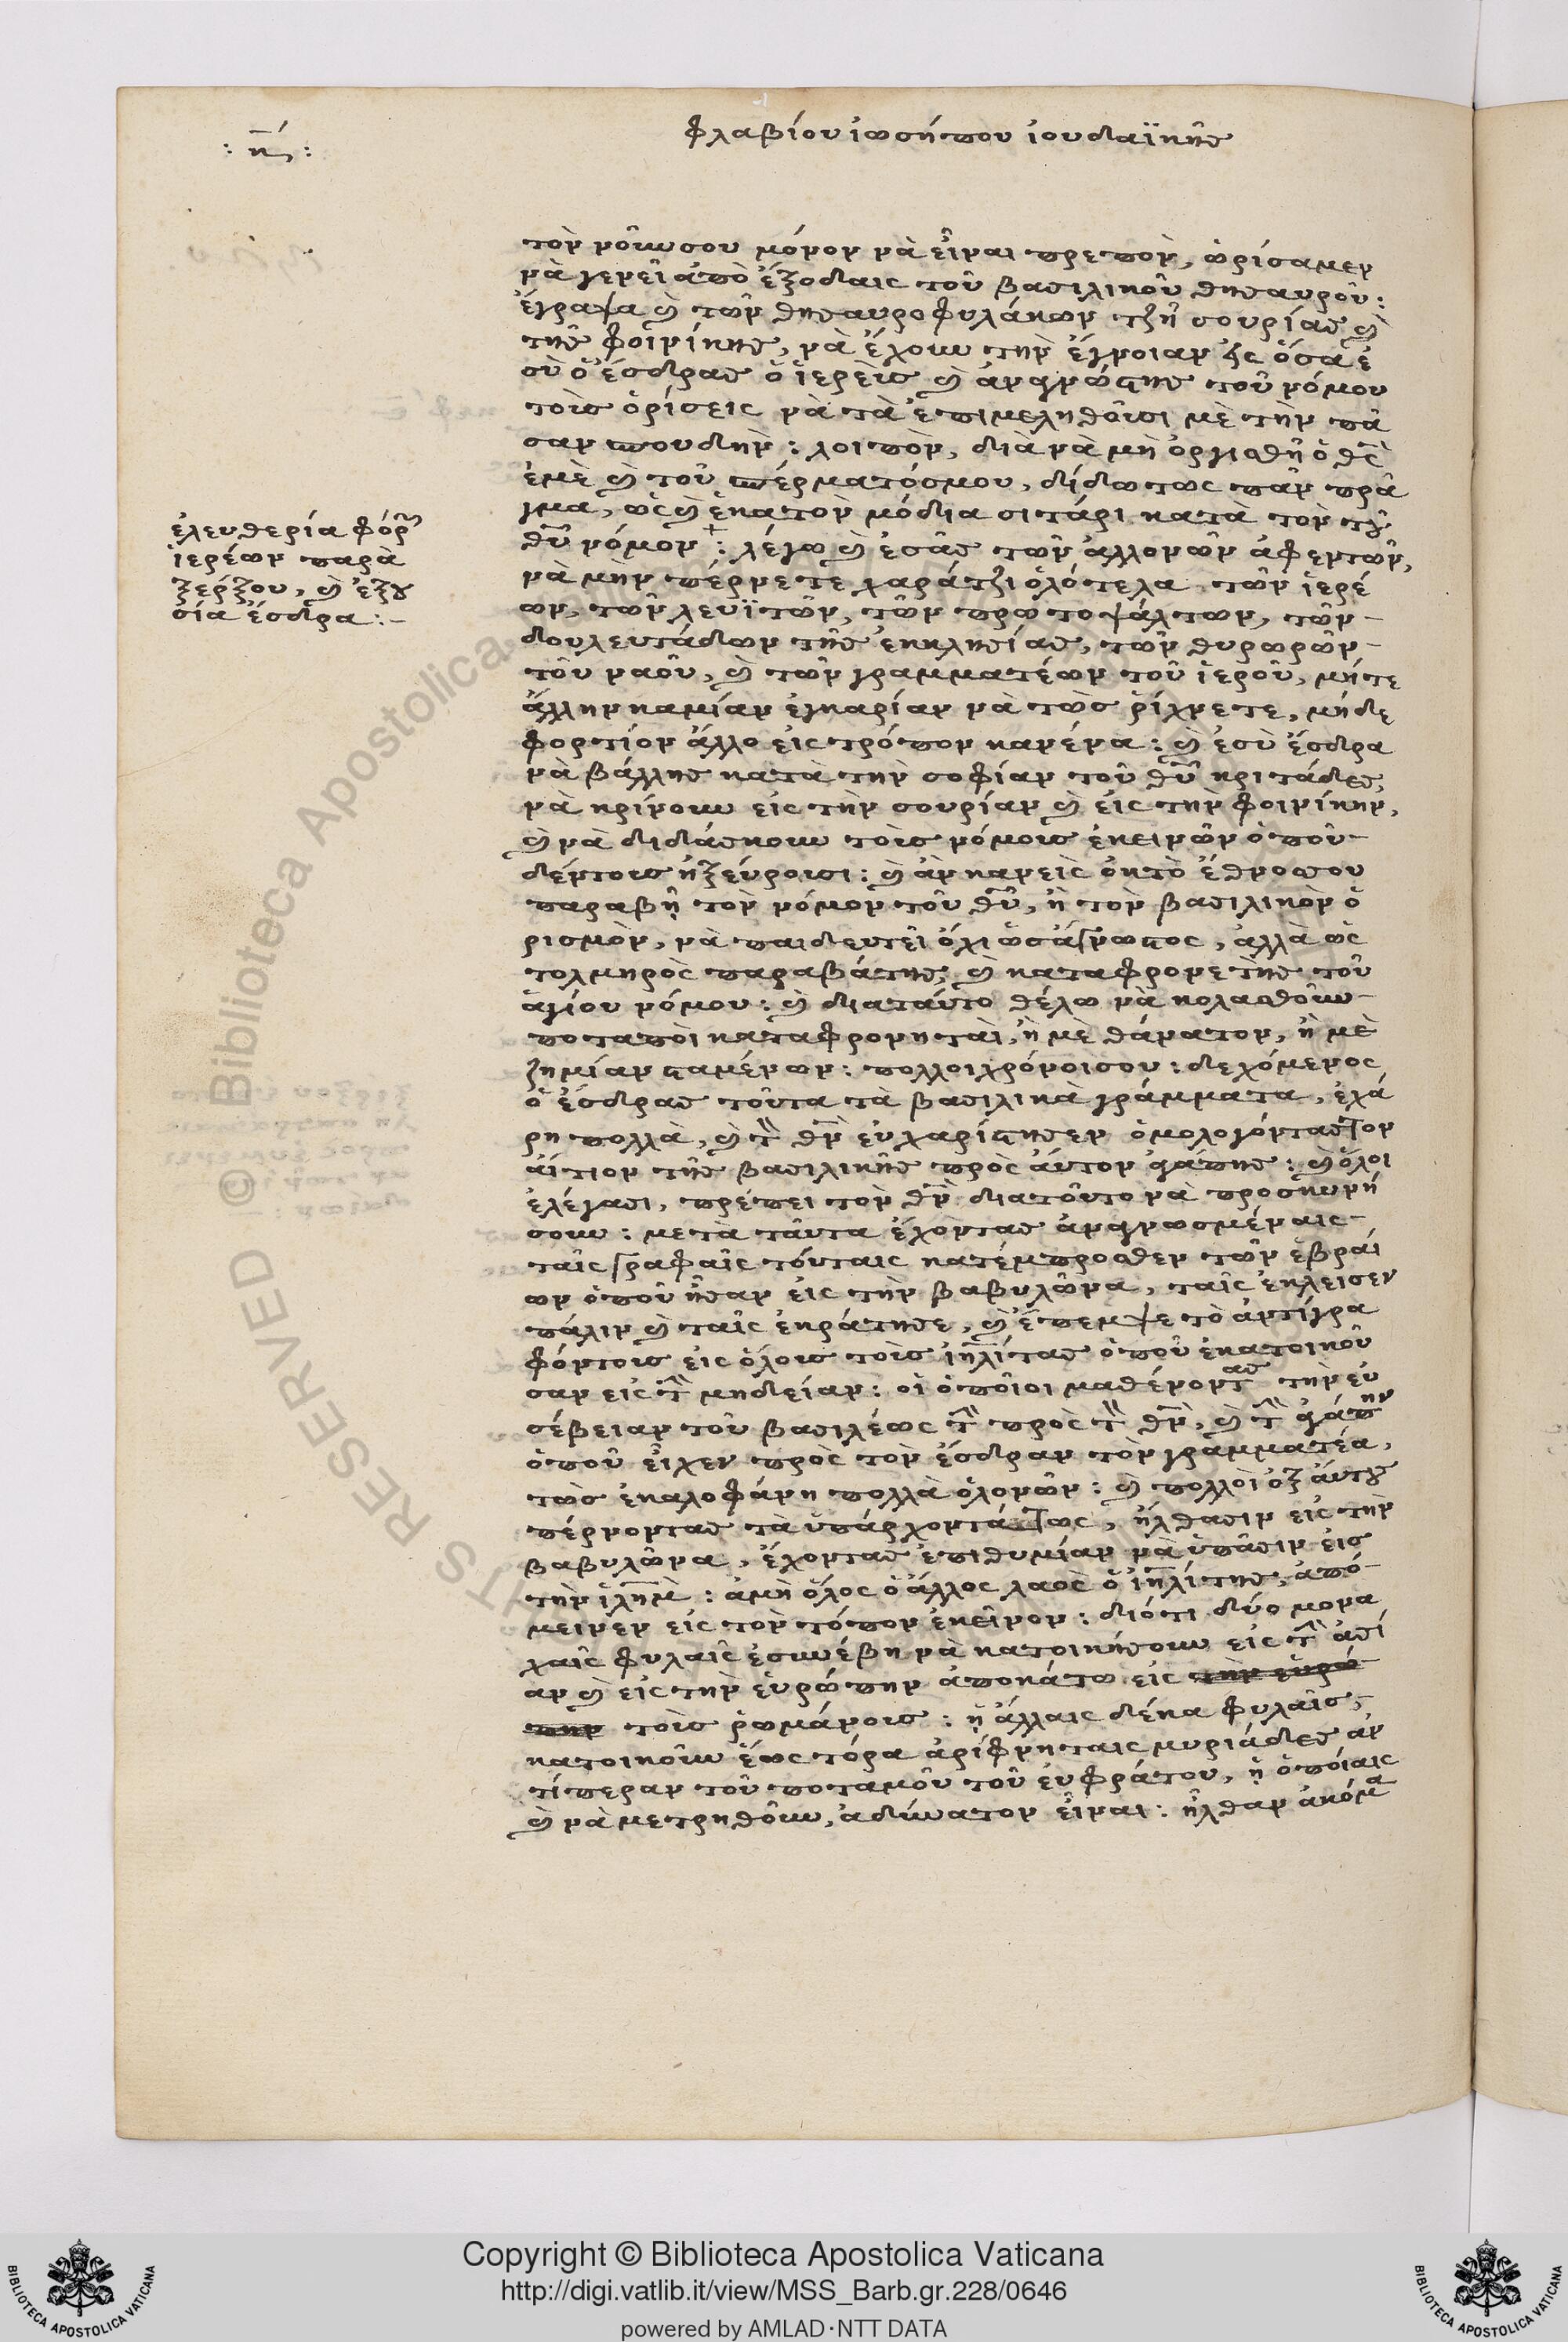 φλαβίου ἰωσήπου ἰουδαϊκῆς
: η :
τὸν νοῦν σου μόνον νὰ εἶναι πρεπὸν, ὡρίσαμεν
νὰ γενεῖ ἀπὸ ἔξοδαις τοῦ βασιλικοῦ θησαυροῦ:
ἔγραψα καὶ τῶν θησαυροφυλάκων τζῆ συρίας καὶ
τῆς φοινίκης, νὰ ἔχουν τὴν ἔγνοιαν εἰς ὅσα ἐ
σὺ ὁ ἔσδρας ὁ ἱερεὺς καὶ ἀναγνώστης τοῦ νόμου
τοὺς ὁρίσεις νὰ τὰ ἐπιμεληθοῦσι μὲ τὴν πᾶ
σαν σπουδὴν: λοιπὸν, διὰ νὰ μὴ ὀργισθῆ ὁ θς
ἐμὲ καὶ τοῦ σπέρματόσμου, δίδω τως πᾶν πρᾶ
γμα, ὡς καὶ ἑκατὸν μόδια σιτάρι κατὰ τὸν τοῦ
θῦ νόμον: λέγω καὶ ἐσᾶς τῶν ἀλλονῶν ἀφεντῶν,
νὰ μὴν πέρνετε χαράτζι ὁλότελα τῶν ἱερέ
ων, τῶν λευϊτῶν, τῶν πρωτοψάλτων, τῶν
δουλευτάδων τῆς ἐκκλησίας, τῶν θυρωρῶν
τοῦ ναοῦ, καὶ τῶν γραμματέων τοῦ ἱεροῦ, μήτε
ἄλλην καμίαν ἐγκαρίαν νὰ τῶς ρίχνετε, μήδε
φορτίον ἄλλο εἰς τρόπον κανένα: καὶ ἐσὺ ἔσδρα
νὰ βάλλης κατὰ τὴν σοφίαν τοῦ θῦ κριτάδες,
νὰ κρίνουν εἰς τὴν συρίαν καὶ εἰς τὴν φοινίκην,
καὶ νὰ διδάσκουν τοὺς νόμους ἐκεινῶν ὁποῦ
δέντους ἠξεύρουσι: καὶ ἂν κανεὶς ὀκτὸ ἔθνοσου
παραβῆ τὸν νόμον τοῦ θῦ, ἢ τὸν βασιλικὸν ὁ
ρισμὸν, νὰ παιδευτεῖ ὄχι ὡσὰ γνωστος, ἀλλὰ ὡς
τολμηρὸς παραβάτης, καὶ καταφρονετὴς τοῦ
ἁγίου νόμου: καὶ διαταύτο θέλω νὰ κολασθοῦν
ποταποὶ καταφρονηταὶ, ἢ μὲ θάνατον, ἢ μὲ
ζημίαν σταμένων: πολλοιχρόνοισου: δεχόμενος
ὁ ἔσδρας τοῦτα τὰ βασιλικὰ γράμματα, ἐχά
ρη πολλὰ, καὶ τὸν θν εὐχαρίστησεν ὁμολογόντας τον
αἴτιον τῆς βασιλικῆς πρὸς αὐτὸν ἀγάπης: καὶ ὅλοι
ἐλέγασι, πρέπει τὸν θν διατοῦτο νὰ προσκυνή
σουν: μετὰ ταῦτα ἐχόντας ἀναγνωσμέναις
ταῖς γραφαῖς τούταις κατέμπροσθεν τῶν ἑβραί
ων ὁποῦ ἦσαν εἰς τὴν βαβυλῶνα, ταῖς ἐκλεισεν
πάλιν καὶ ταῖς ἐκράτησε, καὶ ἔπεμψε τὸ ἀντίγρα
φόντους εἰς ὅλους τοὺς ἰηλίτας ὁποῦ ἐκατοικοῦ
σαν εἰς τὴν μηδείαν: οἱ ὁποῖοι μαθένοντας τὴν εὐ
σέβειαν τοῦ βασιλέως τὴν πρὸς τὸν θν, καὶ τὴν ἀγάπην
ὁποῦ εἶχεν πρὸς τὸν ἔσδραν τὸν γραμματέα,
τῶς ἐκαλοφάνη πολλὰ ὁλονῶν: καὶ πολλοὶ ὀξ αὐτοῦ
πέρνοντας τὰ ὑπάρχοντά τως, ἤλθασιν εἰς τὴν
βαβυλῶνα, ἔχοντας ἐπιθυμίαν νὰ ὑπᾶσιν εἰς
τὴν ἱλημ: ἀμὴ ὅλος ὁ ἄλλος λαὸς ὁ ἰηλίτης, ἀπό
μεινεν εἰς τὸν τόπον ἐκεῖνον: διότι δύο μονα
χαῖς φυλαῖς ἐσυνέβη νὰ κατοικήσουν εἰς τὴν ἀσί
αν καὶ εἰς τὴν εὑρώπην ἀποκάτω εἰς τὴν εὑρώ
πην τοὺς ρωμάνους: ἡ ἄλλαις δέκα φυλαῖς,
κατοικοῦν ἕως τόρα ἀρίφνηταις μυριάδες ἀν
τίπεραν τοῦ ποταμοῦ τοῦ εὐφράτου, ἡ ὁποίαις
καὶ νὰ μετρηθοῦν, ἀδύνατον εἶναι: ἦλθαν ἀκόμα
ἐλευθερία φόρου
ἱερέων παρὰ
ξέρξου, καὶ ἐξου
σία ἔσδρα:-
Copyright © Biblioteca Apostolica Vaticana
http://digi.vatlib.it/view/MSS_Barb.gr.228/0646
powered by AMLAD·NTT DATA
BIBLIOTECA APOSTOLICA VATICANA
BIBLIOTECA APOSTOLICA VATICANA